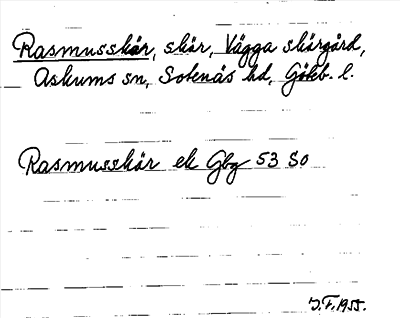 Rasmusskär, skär, Vägga skärgård,
Askums sn, Sotenäs hd, Göteb. l.
Rasmusskär ek Gbg 53 So
J.F. 1955.